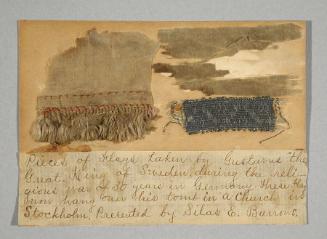 Pieces of Flags taken by Gustavus "the
Great King of Sweden, during the reli-
gious war of 30 years in Germany. These flags
now hang over his tomb in a Church in
Stockholm, Presented by Silas E. Burrows.